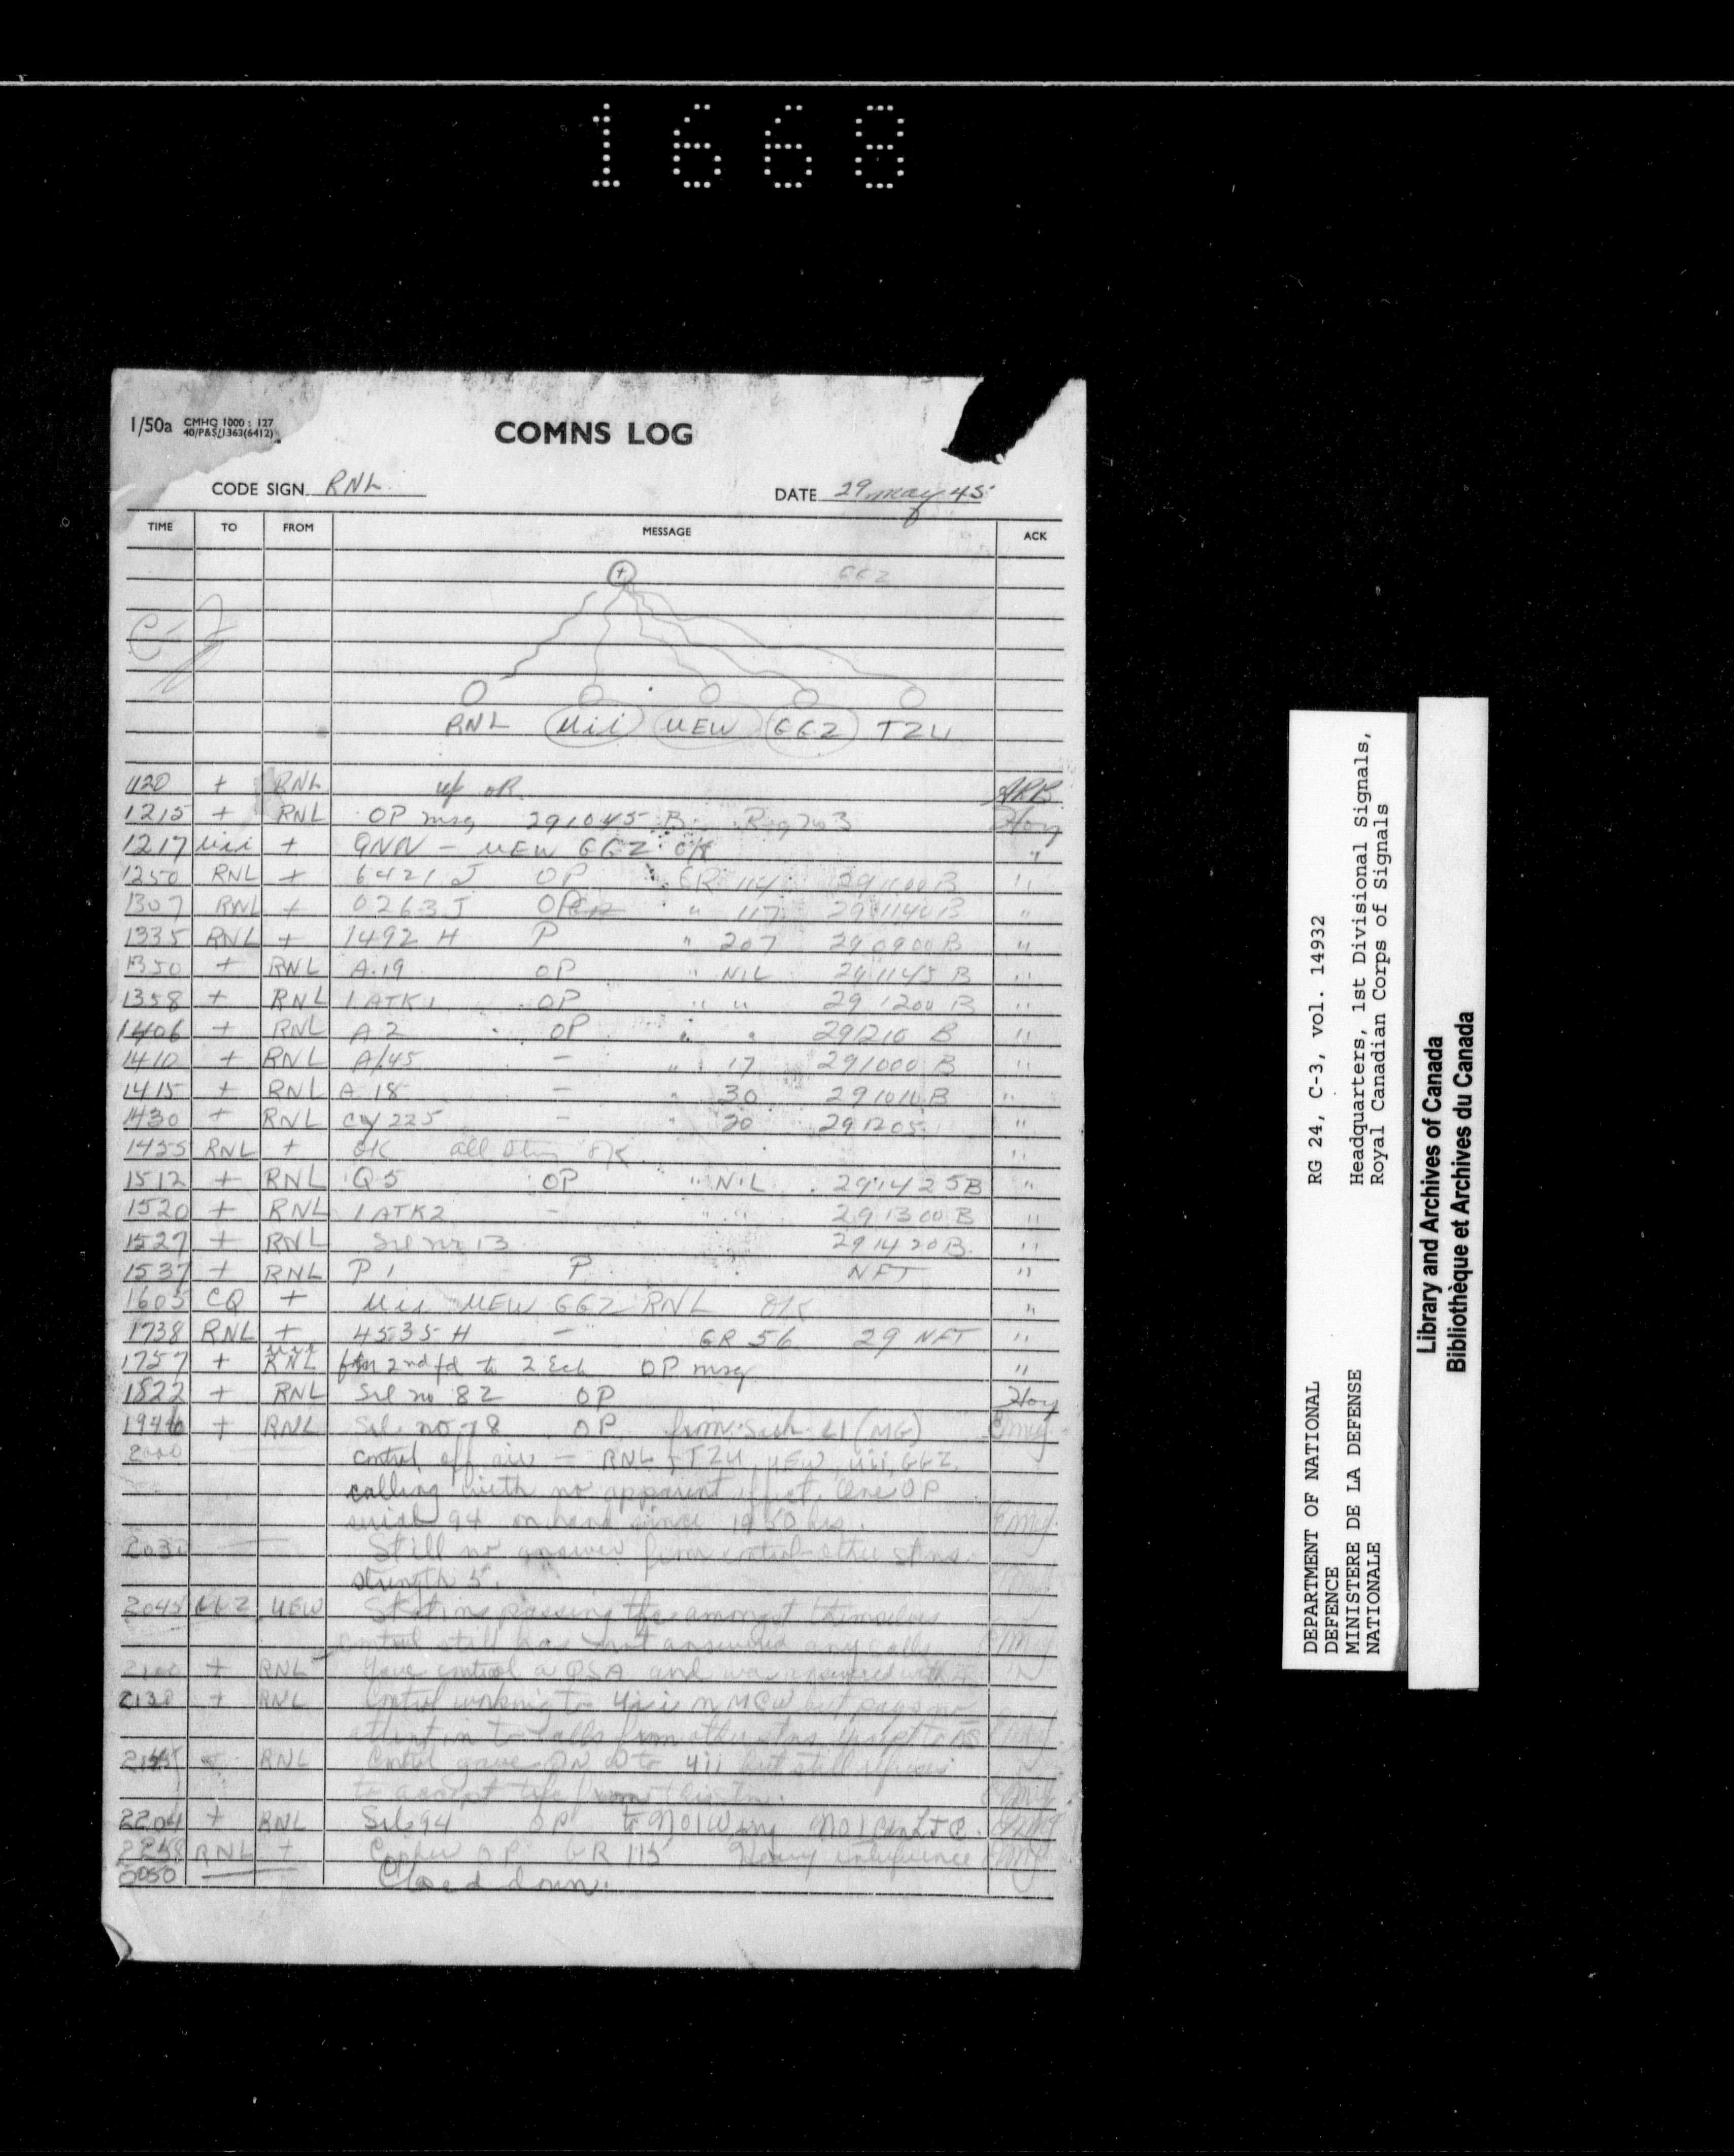 1668
1/50a CMHQ 1000 : 127
40/P&S/1363(6412)
COMNS LOG
CODE SIGN RNL
DATE 29 may 45
TIME TO FROM MESSAGE ACK
+ GGZ
RNL Uii UEW GGZ TZU
1120 + RNL ARB
1215 + RNL OP msg 291045 B Hoy
1217 Uii + QNN - UEW GGZ OK "
1250 RNL + 6421 J OP GR 114 291100 B "
1307 RNL + 0263 J OP " 117 291140 B "
1335 RNL + 1492 H P " 207 290900 B "
1350 + RNL A.19 OP " NIL 291145 B "
1358 + RNL 1 ATK 1 OP " " 291200 B "
1406 + RNL A 2 OP " " 291210 B "
1410 + RNL A/45 - " 17 291000 B "
1415 + RNL A 18 - " 30 291010 B "
1430 + RNL CY 225 - " 20 291205 "
1455 RNL + OK all OK "
1512 + RNL Q 5 OP " NIL 291425 B "
1520 + RNL 1 ATK 2 - " " 291300 B "
1527 + RNL Srl nr 13 291420 B "
1537 + RNL P 1 P " NFT "
1605 CQ + Uii UEW GGZ RNL OK "
1738 RNL + 4535 H - GR 56 29 NFT "
1757 + RNL fm 2nd fd to 2 Ech OP msg "
1822 + RNL Srl no 82 OP Hoy
1940 + RNL Srl no 78 OP from Sask LI (MG)
2000 control off air - RNL, TZU, UEW, Uii, GGZ
calling with no apparent effect. One OP
serial 94 on hand since 1950 hrs.
Still no answer from control - other stns
strength 5.
2045 GGZ UEW passing tfc amongst themselves
control still has not answered any calls
+ RNL Gave control a QSA and was answered with
2130 + RNL Control working to Uii on MCW but pays no
attention to calls from other stns
2145 RNL Control gave to Uii but still refuses
to accept tfc from this stn.
2204 + RNL Srl 94 OP to
RNL + OP GR 115 Heavy interference
Closed down.
DEPARTMENT OF NATIONAL
DEFENCE
MINISTERE DE LA DEFENSE
NATIONALE
RG 24, C-3, vol. 14932
Headquarters, 1st Divisional Signals,
Royal Canadian Corps of Signals
Library and Archives of Canada
Bibliothèque et Archives du Canada